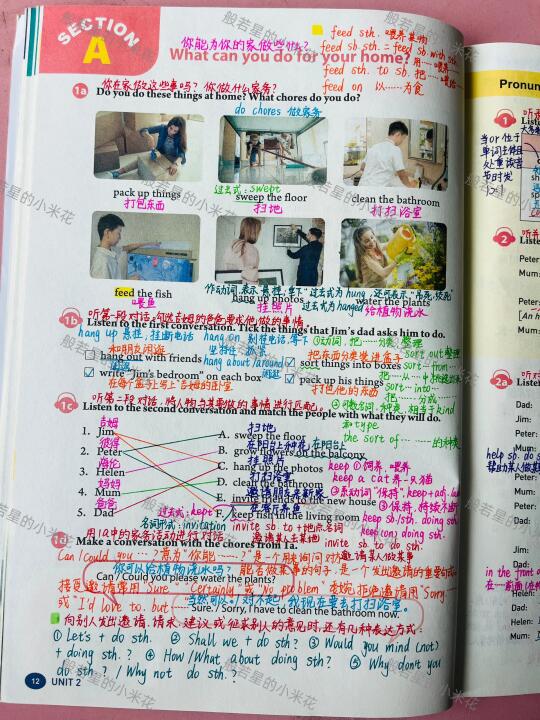 SECTION
A
What can you do for your home?
你能为你的家做些什么?
feed sth. 喂养某物
feed sb sth. = feed sth. with sth.
用……喂养……
feed sth. to sb. 把……喂给……
feed on 以……为食
你在家做这些事吗? 你做什么家务?
1a Do you do these things at home? What chores do you do?
do chores 做家务
pack up things
打包东西
过去式: swept
sweep the floor
扫地
clean the bathroom
打扫浴室
feed the fish
喂鱼
hang up photos
挂照片
water the plants
给植物浇水
作动词,表示"悬挂,垂下"过去式为hung,还可表示"吊死,绞死"
过去式为hanged
听第一段对话,勾选吉姆的爸爸要求他做的事情
1b Listen to the first conversation. Tick the things that Jim's dad asks him to do.
hang up 悬挂,挂断电话
hang on 别挂电话,等下
坚持住,抓紧
hang about/around
闲逛
和朋友闲逛
hang out with friends
把东西分类装进盒子
sort things into boxes
write "Jim's bedroom" on each box
在每个盒子写上"吉姆的卧室"
pack up his things
打包他的东西
①动词,把……分类,整理
sort out 整理
sort … from …
把……从……中挑选出来
sort … into …
把……分成……
②可数名词,种类,相当于kind
和type
the sort of ……的种类
听第二段对话,将人物与其要做的事情进行匹配。
1c Listen to the second conversation and match the people with what they will do.
吉姆
1. Jim
彼得
2. Peter
海伦
3. Helen
妈妈
4. Mum
爸爸
5. Dad
扫地
A. sweep the floor
在阳台上种花
B. grow flowers on the balcony
在阳台上
挂照片
C. hang up the photos
打扫浴室
D. clean the bathroom
邀请朋友来新家
E. invite friends to the new house
在客厅养鱼
F. keep fish in the living room
过去式: kept
keep ①饲养,喂养
keep a cat 养一只猫
②系动词"保持", keep+adj.
③保持,持续不断
keep sb/sth. doing sth.
keep (on) doing sth.
名词形式: invitation
invite sb to + 地点名词
邀请某人去某地
invite sb. to do sth.
邀请某人做某事
用1a中的家务活动进行对话
1d Make a conversation with the chores from 1a.
Can / Could you …? 意为"你能……?"是一个用来询问对方
能否做某事的句子,是一个发出邀请的重要句式。
你可以给植物浇水吗?
Can / Could you please water the plants?
接受邀请常用"Sure." "Certainly."或"No problem."委婉拒绝邀请用"Sorry, …"
或"I'd love to, but …"
当然可以/对不起,我现在要去打扫浴室。
Sure. / Sorry, I have to clean the bathroom now.
向别人发出邀请、请求、建议或征求别人的意见时,还有几种表达方式:
① Let's + do sth. ② Shall we + do sth? ③ Would you mind (not)
+ doing sth.? ④ How / What about doing sth? ⑤ Why don't you
do sth.? / Why not do sth.?
12 UNIT 2
Pronun
1
当or位于
2
Peter:
Mum:
Peter:
Mum:
2a
Dad:
Jim:
Dad:
Jim:
Dad:
Helen:
Mum:
般若星的小米花